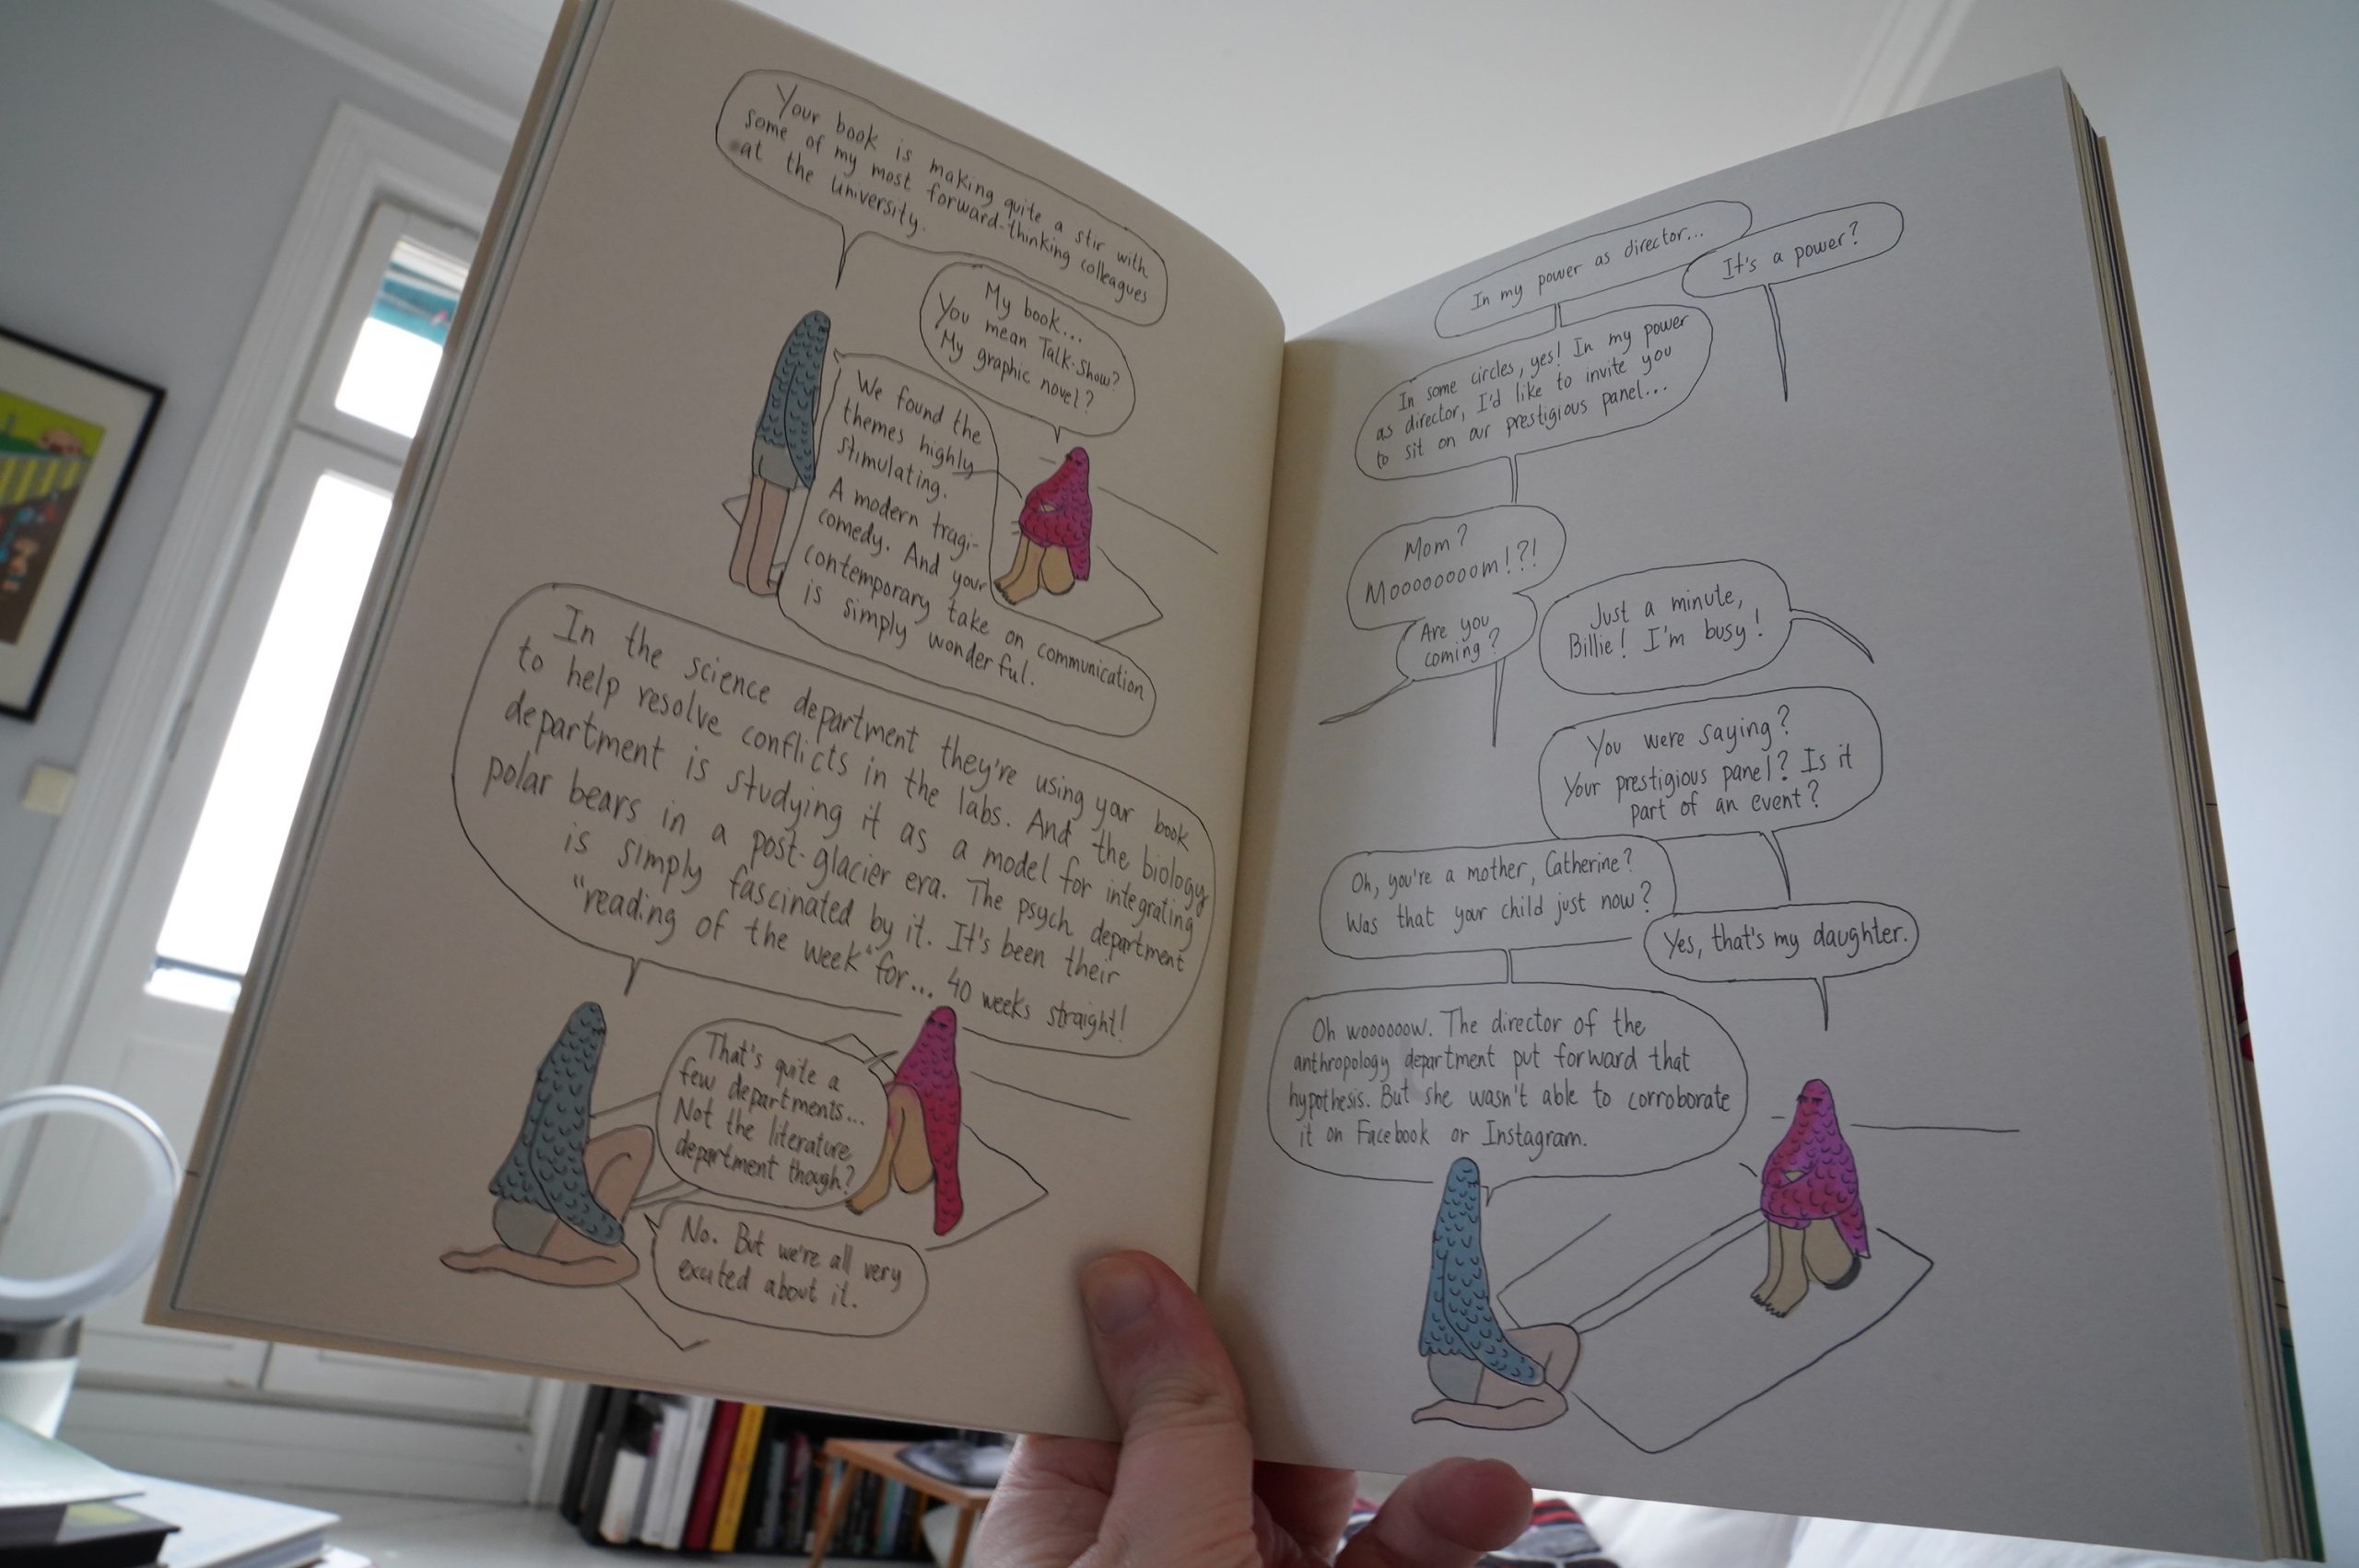 Your book is making quite a stir with
some of my most forward-thinking colleagues
at the university.
My book...
You mean Talk-Show?
My graphic novel?
We found the
themes highly
stimulating.
A modern tragi-
comedy. And your
contemporary take on communication
is simply wonderful.
In the science department they're using your book
to help resolve conflicts in the labs. And the biology
department is studying it as a model for integrating
polar bears in a post-glacier era. The psych department
is simply fascinated by it. It's been their
"reading of the week" for... 40 weeks straight!
That's quite a
few departments...
Not the literature
department though?
No. But we're all very
excited about it.
In my power as director...
It's a power?
In some circles, yes! In my power
as director, I'd like to invite you
to sit on our prestigious panel...
Mom?
Moooooooom!?!
Are you
coming?
Just a minute,
Billie! I'm busy!
You were saying?
Your prestigious panel? Is it
part of an event?
Oh, you're a mother, Catherine?
Was that your child just now?
Yes, that's my daughter.
Oh woooooow. The director of the
anthropology department put forward that
hypothesis. But she wasn't able to corroborate
it on Facebook or Instagram.